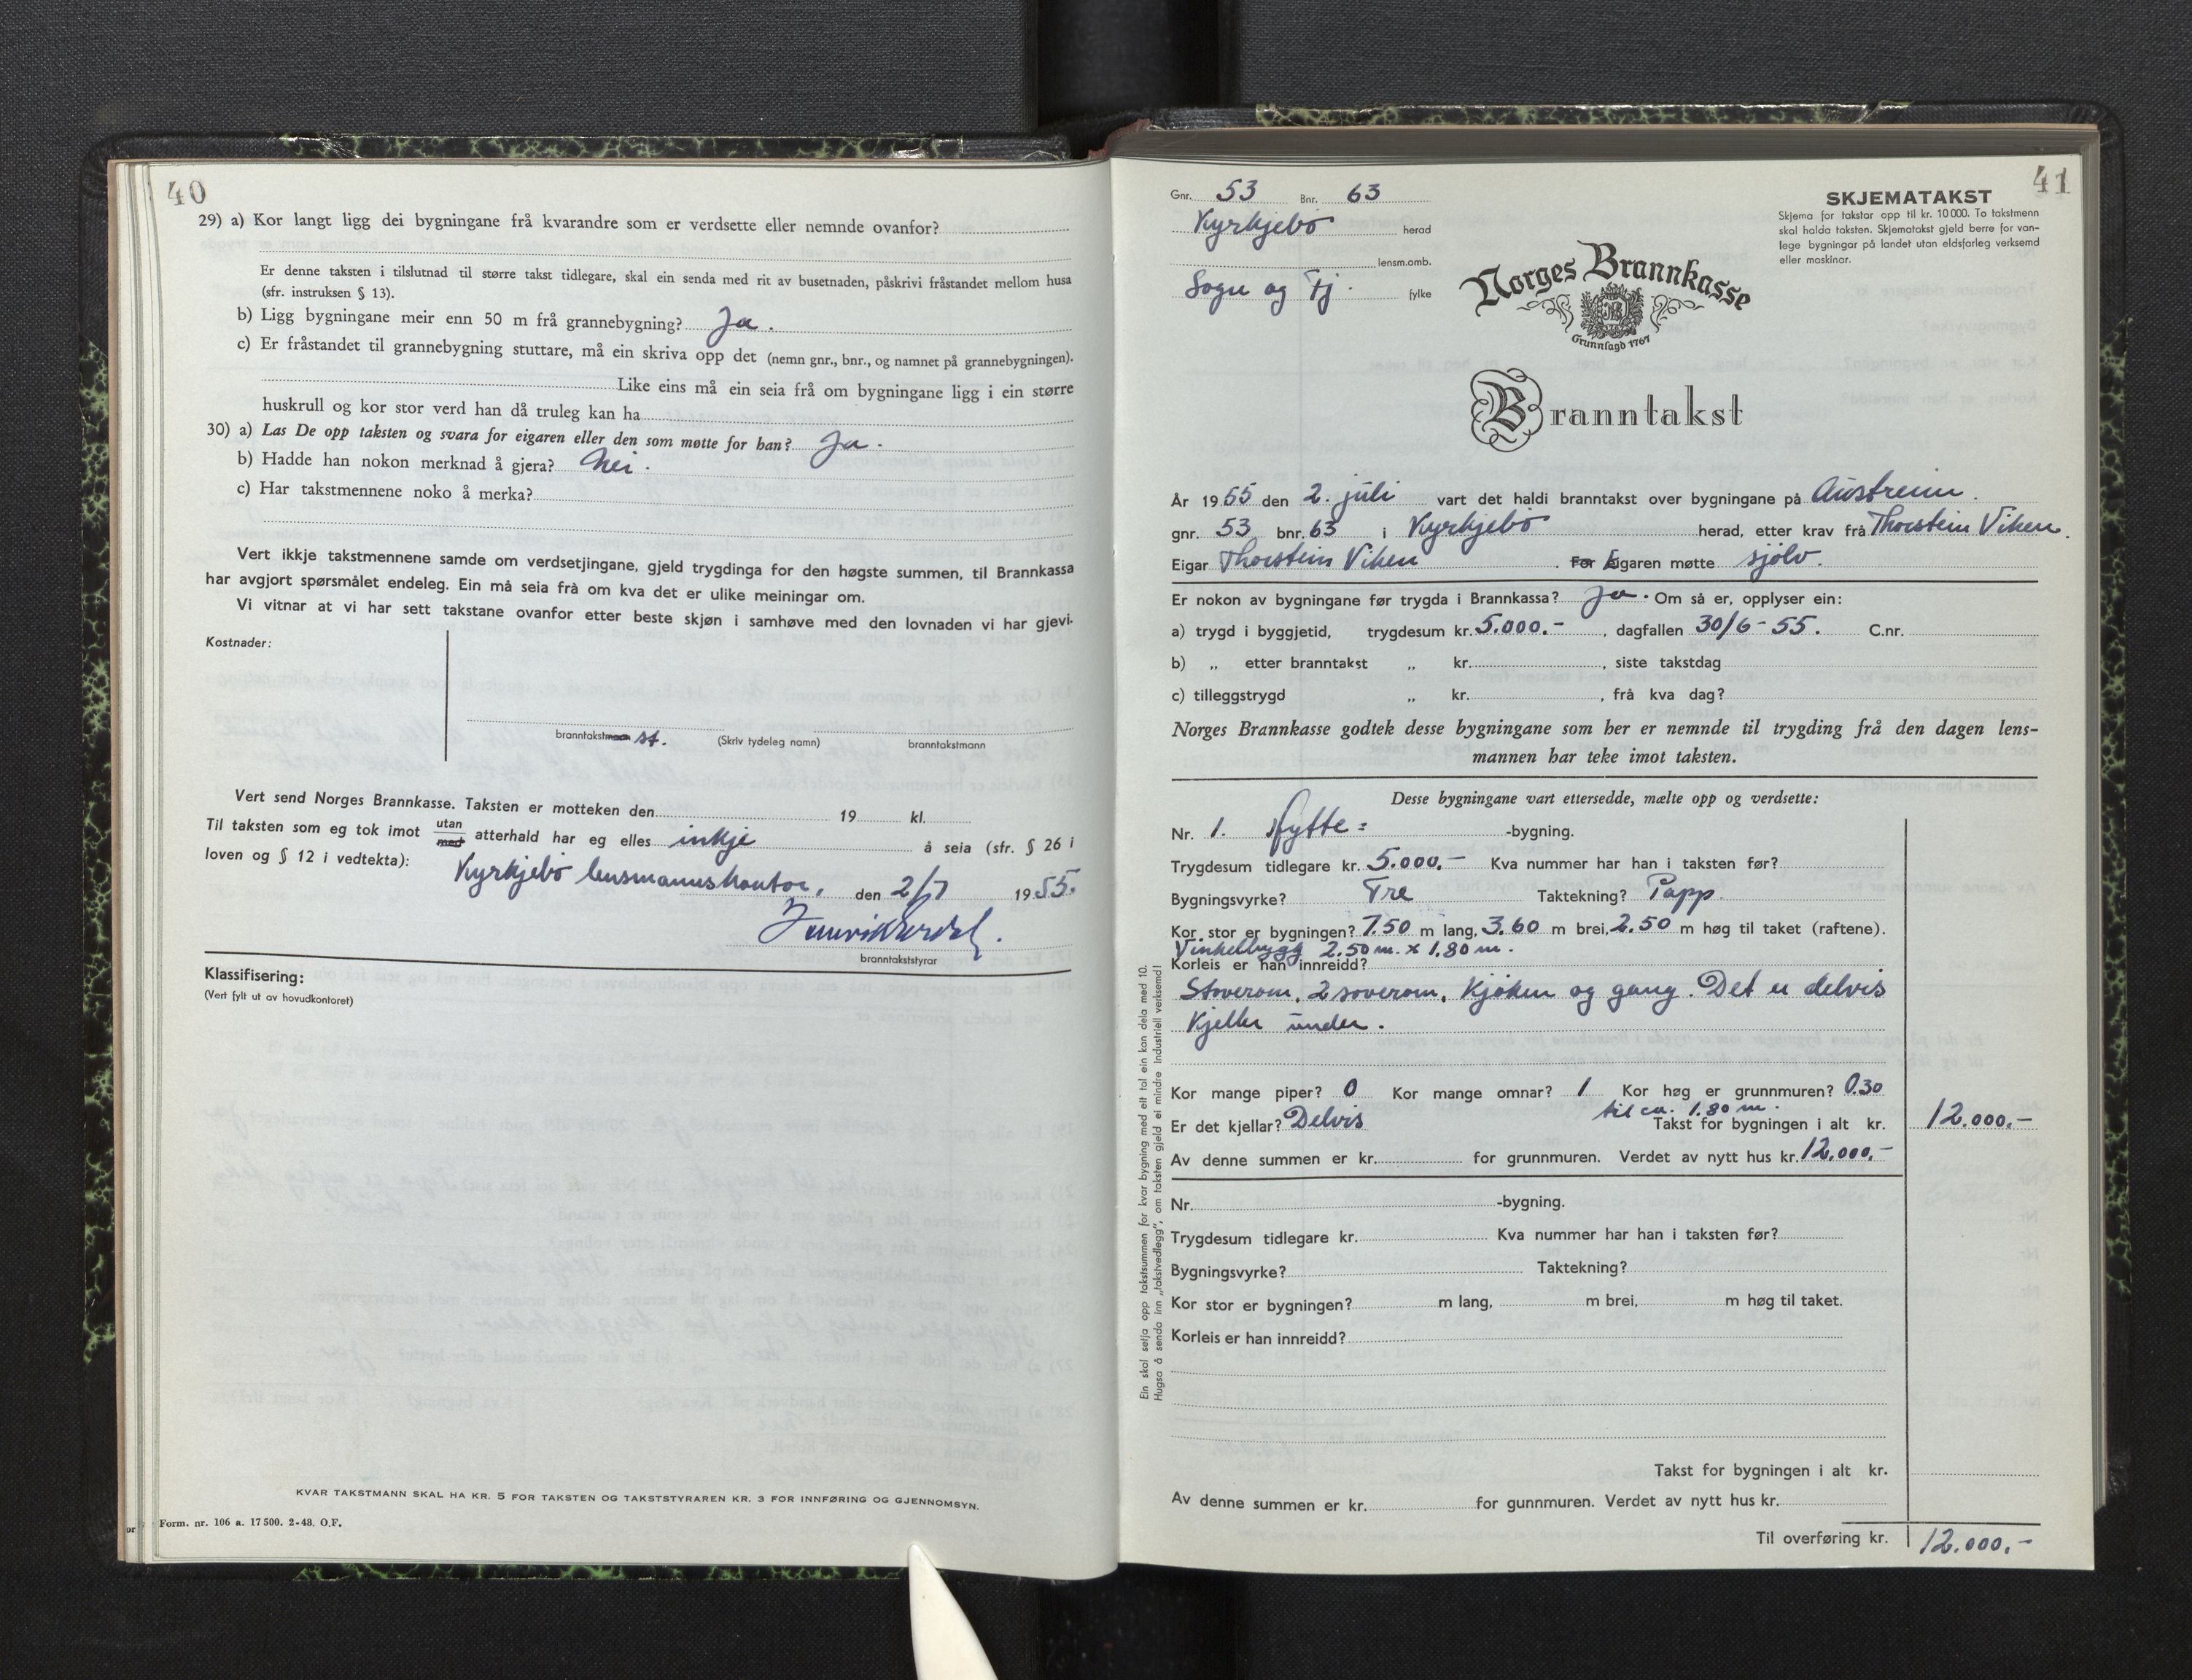 40
29) a) Kor langt ligg dei bygningane frå kvarandre som er verdsette eller nemnde ovanfor?
Er denne taksten i tilslutnad til større takst tidlegare, skal ein senda med rit av busetnaden, påskrivi fråstandet mellom husa
(sfr. instruksen § 13).
b) Ligg bygningane meir enn 50 m frå grannebygning? Ja.
c) Er fråstandet til grannebygning stuttare, må ein skriva opp det (nemn gnr., bnr., og namnet på grannebygningen).
Like eins må ein seia frå om bygningane ligg i ein større
huskrull og kor stor verd han då truleg kan ha
30) a) Las De opp taksten og svara for eigaren eller den som møtte for han? Ja.
b) Hadde han nokon merknad å gjera? Nei.
c) Har takstmennene noko å merka?
Vert ikkje takstmennene samde om verdsetjingane, gjeld trygdinga for den høgste summen, til Brannkassa
har avgjort spørsmålet endeleg. Ein må seia frå om kva det er ulike meiningar om.
Vi vitnar at vi har sett takstane ovanfor etter beste skjøn i samhøve med den lovnaden vi har gjevi.
Kostnader:
branntakstmann st. (Skriv tydeleg namn) branntakstmann
Vert send Norges Brannkasse. Taksten er motteken den 19 kl.
Til taksten som eg tok imot utan med atterhald har eg elles inkje å seia (sfr. § 26 i
loven og § 12 i vedtekta):
Kyrkjebø lensmannskontor, den 2/7 1955.
branntakststyrar
Klassifisering:
(Vert fylt ut av hovudkontoret)
KVAR TAKSTMANN SKAL HA KR. 5 FOR TAKSTEN OG TAKSTSTYRAREN KR. 3 FOR INNFØRING OG GJENNOMSYN.
Form. nr. 106 a. 17500. 2-48. O.F.
41
Gnr. 53 Bnr. 63
Kyrkjebø herad
lensm.omb.
Sogn og Fj. fylke
SKJEMATAKST
Skjema for takstar opp til kr. 10 000. To takstmenn
skal halda taksten. Skjematakst gjeld berre for van-
lege bygningar på landet utan eldsfarleg verksemd
eller maskinar.
Norges Brannkasse
Grunnlagd 1767
Branntakst
År 1955 den 2. juli vart det haldi branntakst over bygningane på Austreim.
gnr. 53 bnr. 63 i Kyrkjebø herad, etter krav frå Thorstein Viken.
Eigar Thorstein Viken. For Eigaren møtte sjølv.
Er nokon av bygningane før trygda i Brannkassa? Ja. Om så er, opplyser ein:
a) trygd i byggjetid, trygdesum kr. 5.000.-, dagfallen 30/6-55. C.nr.
b) „ etter branntakst „ kr. , siste takstdag
c) tilleggstrygd „ kr. , frå kva dag?
Norges Brannkasse godtek desse bygningane som her er nemnde til trygding frå den dagen lens-
mannen har teke imot taksten.
Desse bygningane vart ettersedde, mælte opp og verdsette:
Nr. 1. Hytte= -bygning.
Trygdesum tidlegare kr. 5.000.- Kva nummer har han i taksten før?
Bygningsvyrke? Tre Taktekning? Papp.
Kor stor er bygningen? 7.50 m lang, 3.60 m brei, 2.50 m høg til taket (raftene).
Vinkelbygg 2.50 m. x 1.80 m.
Korleis er han innreidd?
Stoverom, 2 soverom, kjøken og gang. Det er delvis
kjeller under.
Kor mange piper? 0 Kor mange omnar? 1 Kor høg er grunnmuren? 0.30
til ca. 1.80 m.
Er det kjellar? Delvis Takst for bygningen i alt kr. 12.000.-
Av denne summen er kr. for grunnmuren. Verdet av nytt hus kr. 12.000.-
Nr. -bygning.
Trygdesum tidlegare kr. Kva nummer har han i taksten før?
Bygningsvyrke? Taktekning?
Kor stor er bygningen? m lang, m brei, m høg til taket.
Korleis er han innreidd?
Takst for bygningen i alt kr.
Av denne summen er kr. for gunnmuren. Verdet av nytt hus kr.
Til overføring kr. 12.000.-
Ein skal setja opp takstsummen for kvar bygning med eit tal ein kan dela med 10.
Hugsa å senda inn „takstvedlegg”, om taksten gjeld ei mindre industriell verksemd!